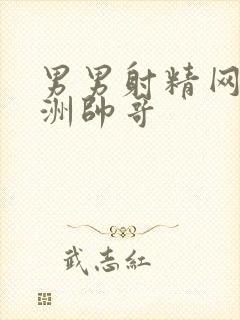 男男射精网
洲帥哥
武志紅